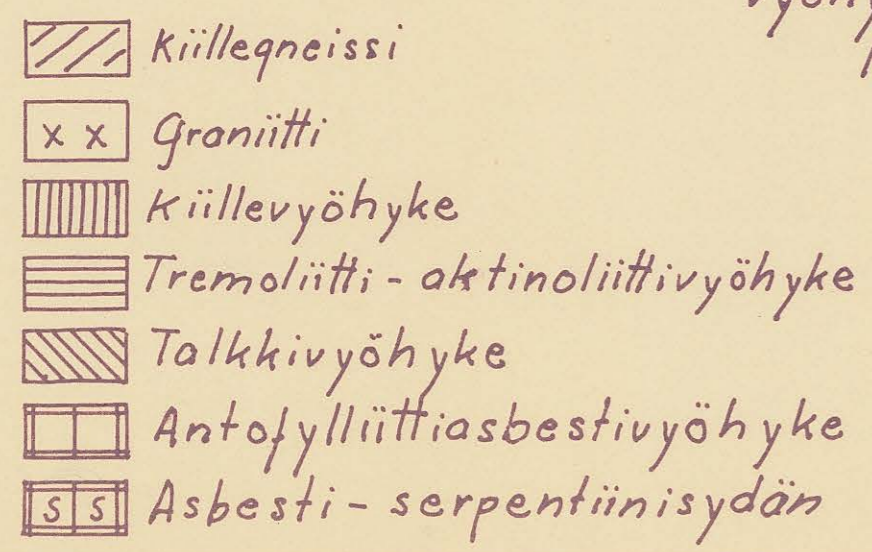 Kiillegneissi
x x Graniitti
Kiillevyöhyke
Tremoliitti - aktinoliittivyöhyke
Talkkivyöhyke
Antofylliittiasbestivyöhyke
S S Asbesti - serpentiinisydän